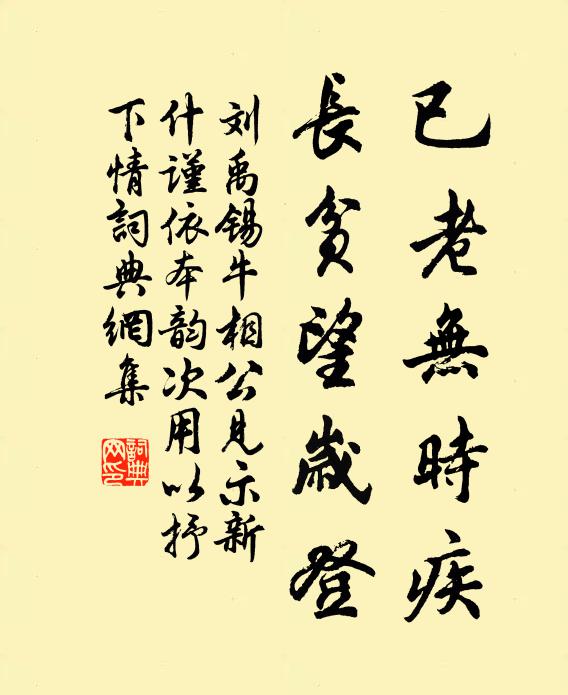 已老無時疾
長貧望歲登
刘禹錫牛相公見示新
什謹依本韵次用以抒
下情詞典網集
詞典
网印